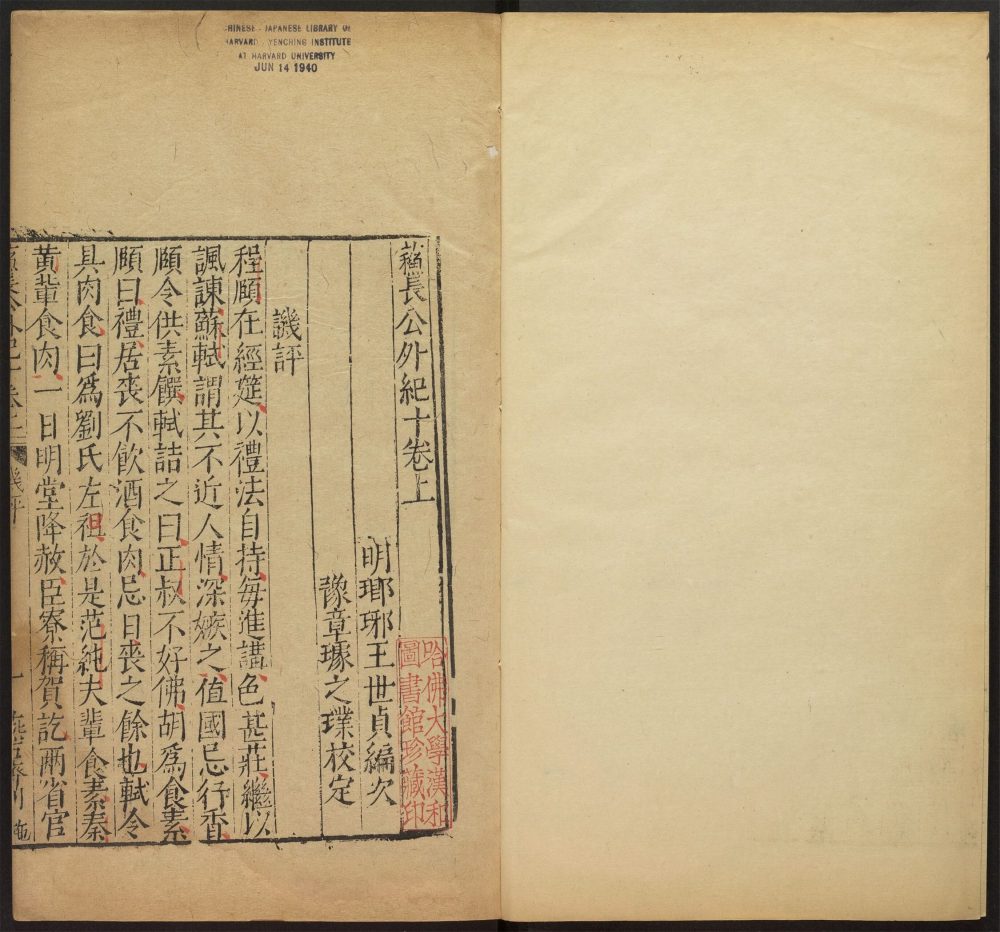 CHINESE - JAPANESE LIBRARY OF
HARVARD - YENCHING INSTITUTE
AT HARVARD UNIVERSITY
JUN 14 1940
蘇長公外紀十卷上
明瑯琊王世貞編次
豫章璩之璞校定
哈佛大學漢和
圖書館珍藏印
譏評
程頤在經筵以禮法自持每進講色甚莊繼以
諷諫蘇軾謂其不近人情深嫉之值國忌行香
頤令供素饌軾詰之曰正叔不好佛胡爲食素
頤曰禮居喪不飲酒食肉忌日喪之餘也軾令
具肉食曰爲劉氏左袒於是范純夫輩食素秦
黃輩食肉一日明堂降赦臣寮稱賀訖兩省官